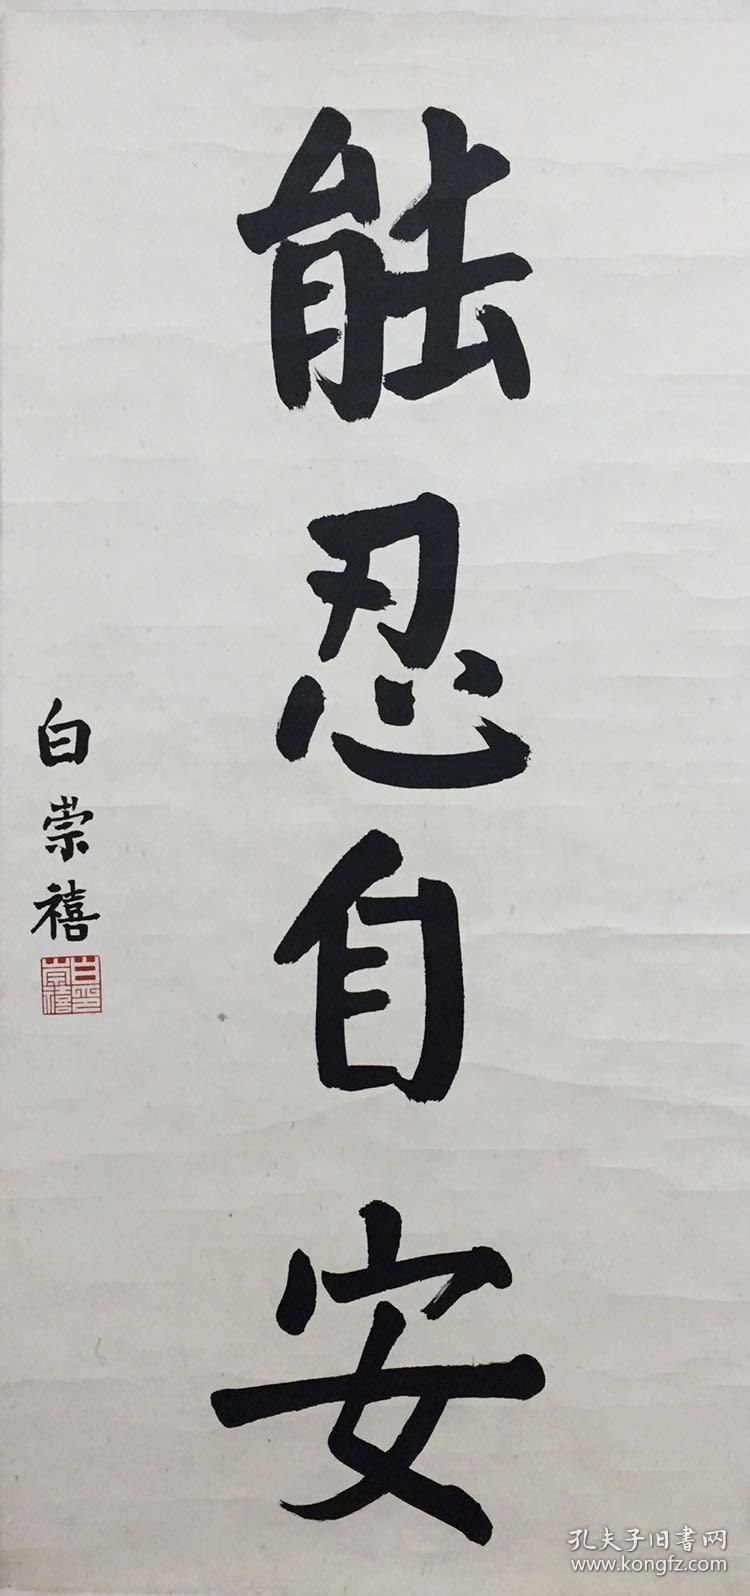 能忍自安
白崇禧
白崇禧印
孔夫子旧书网
www.kongfz.com